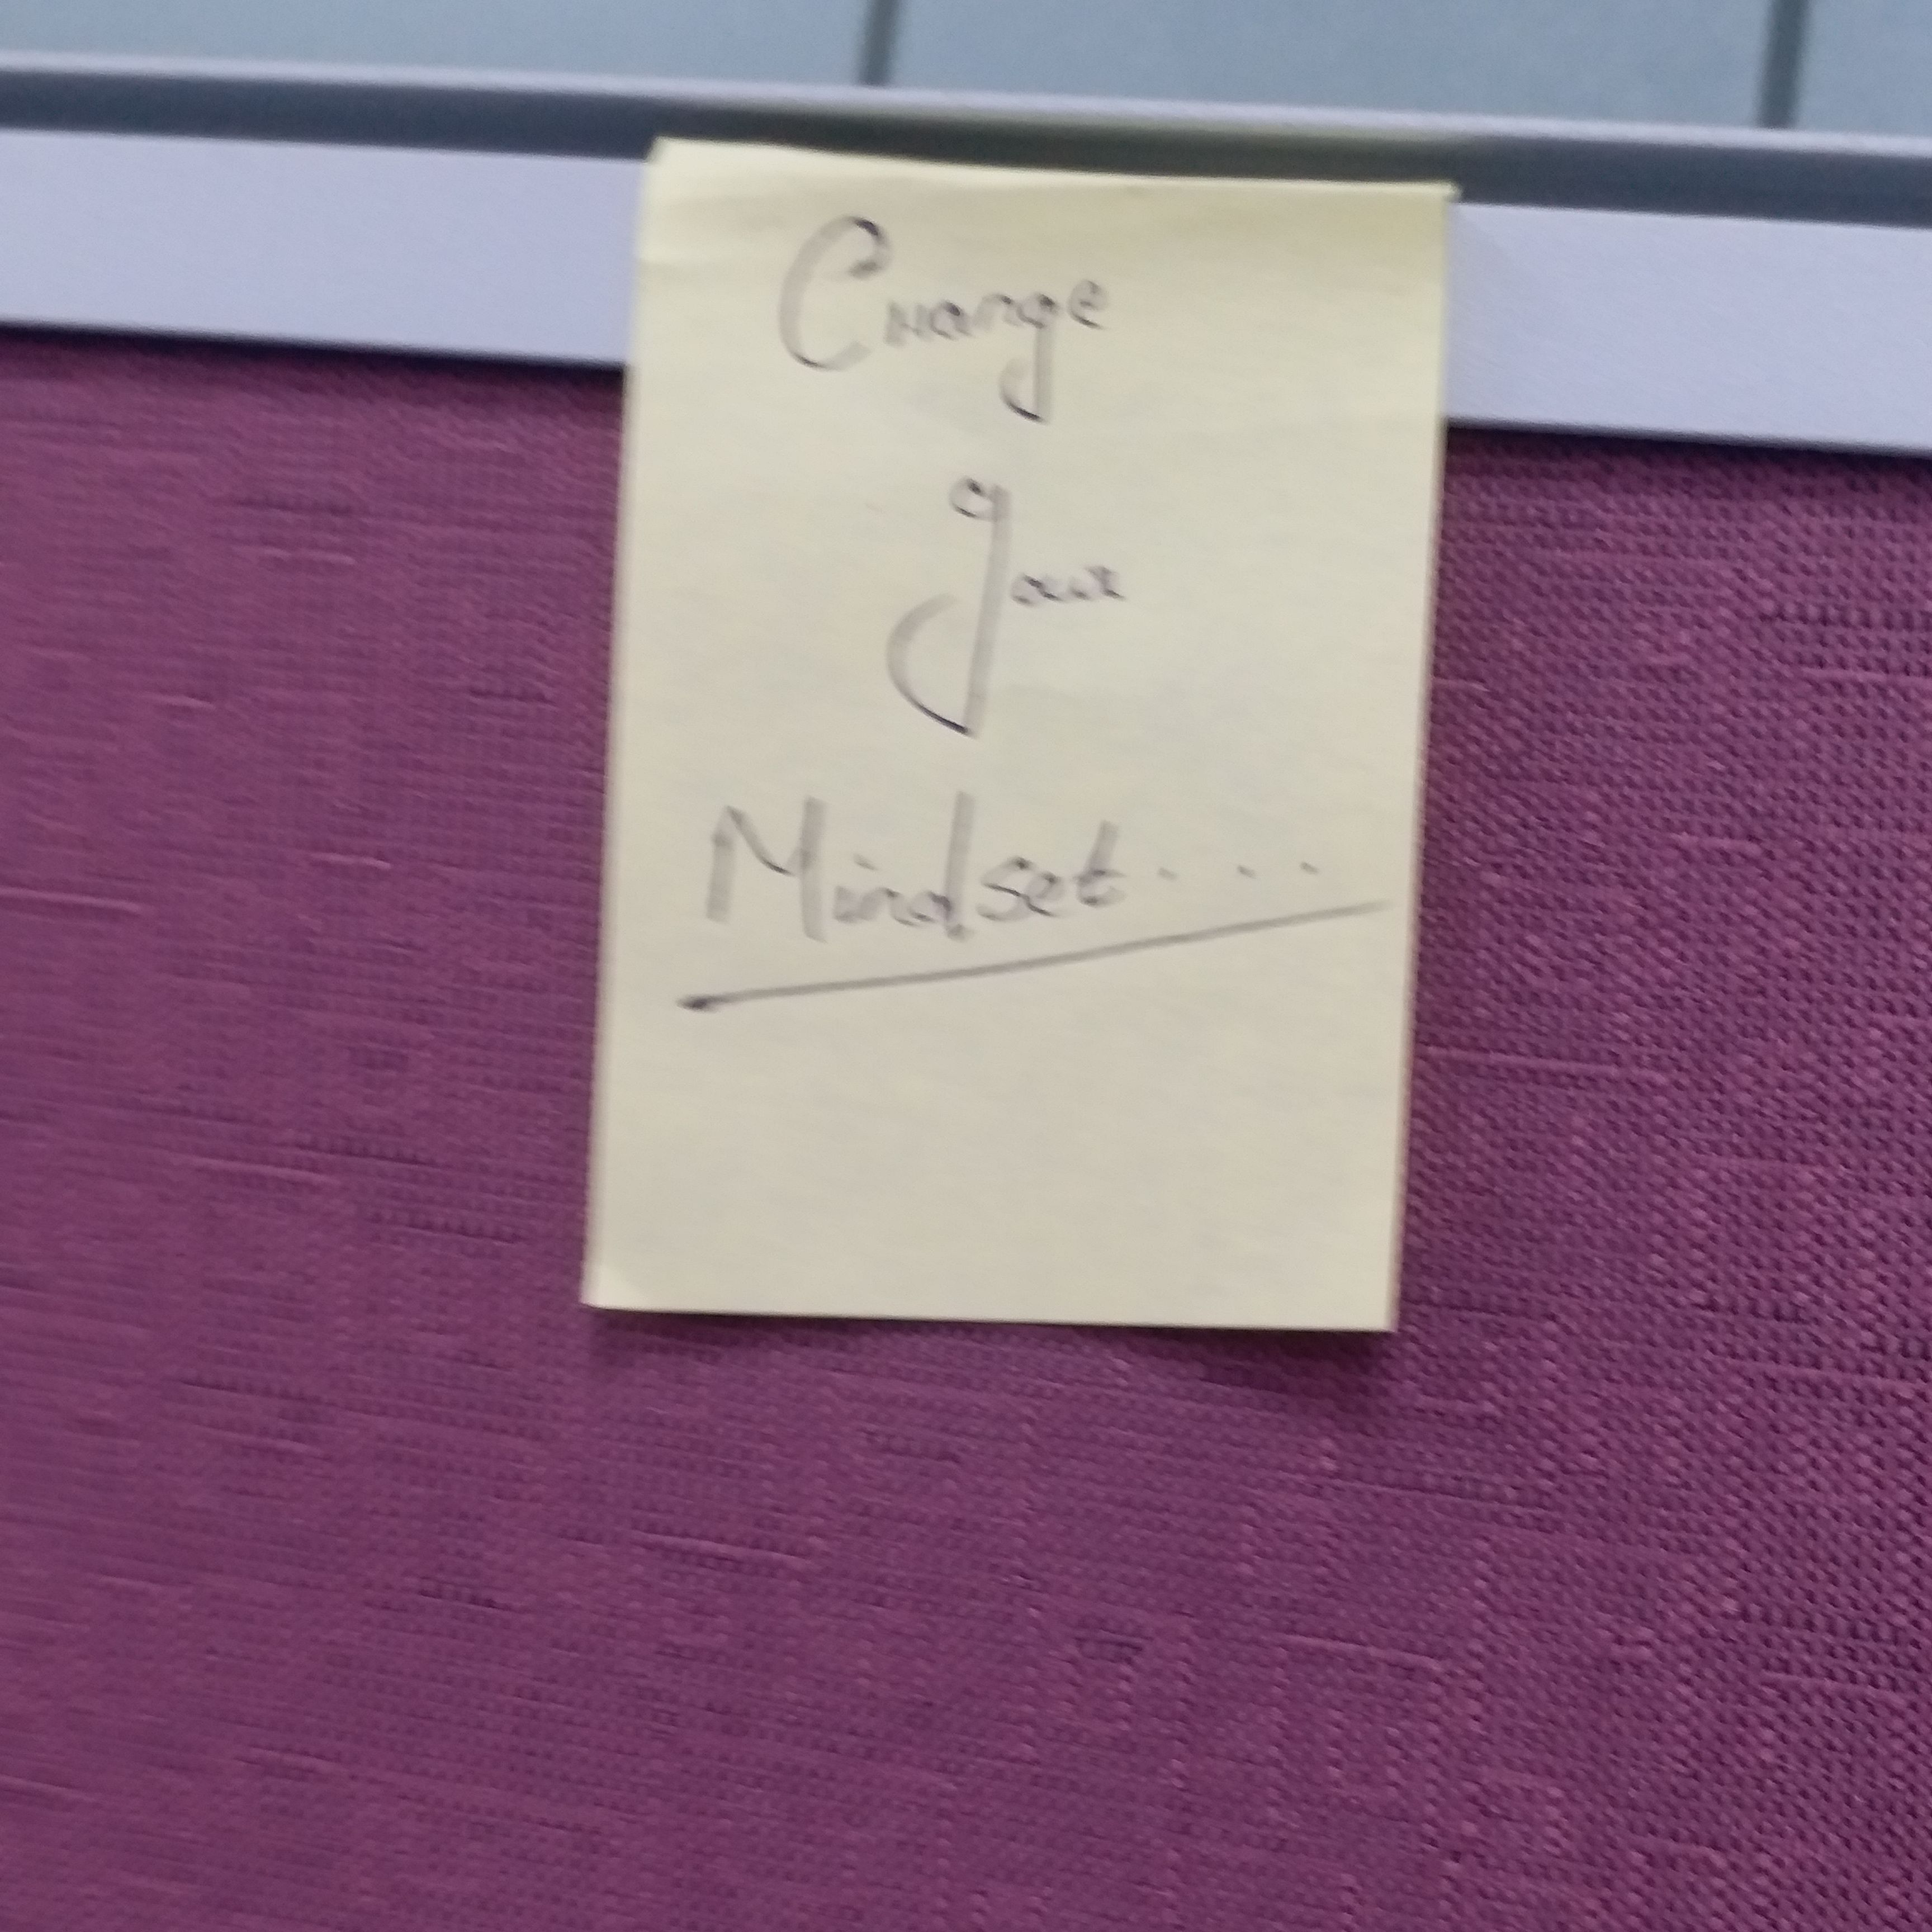 Change
your
Mindset....